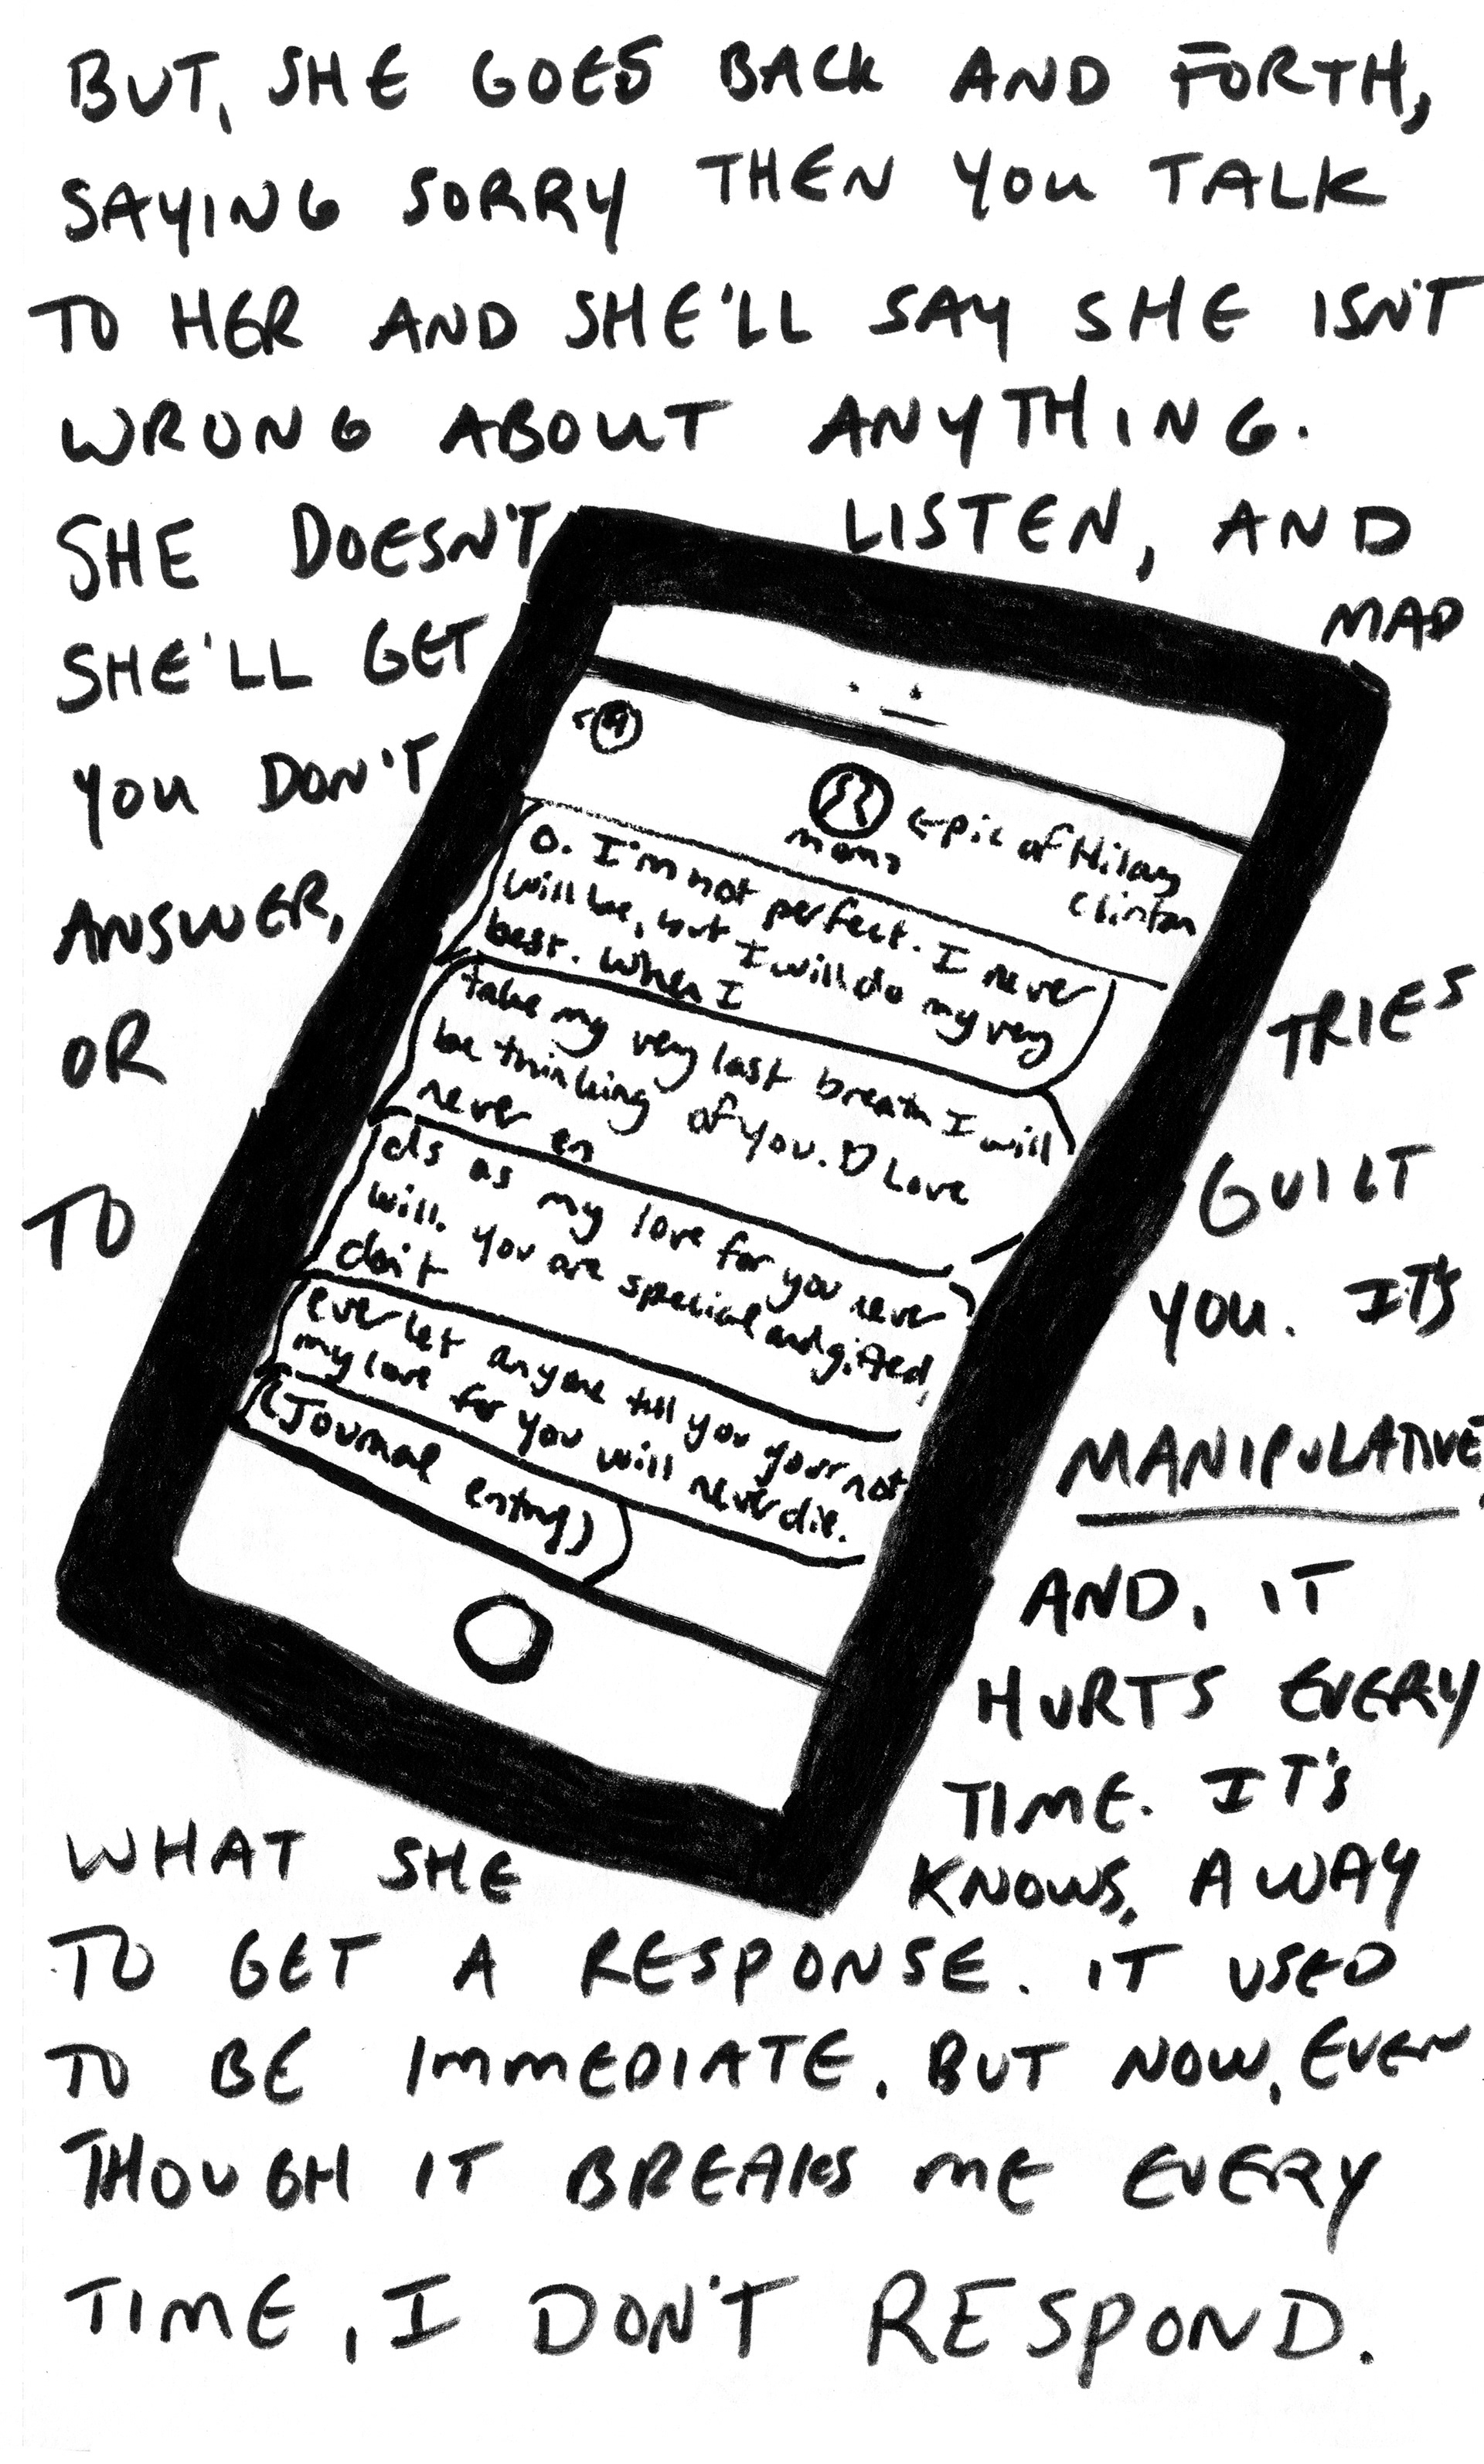 BUT, SHE GOES BACK AND FORTH,
SAYING SORRY THEN YOU TALK
TO HER AND SHE'LL SAY SHE ISN'T
WRONG ABOUT ANYTHING.
SHE DOESN'T LISTEN, AND
SHE'LL GET MAD
YOU DON'T
ANSWER,
OR TRIES
TO GUILT
YOU. IT'S
MANIPULATIVE,
AND, IT
HURTS EVERY
TIME. IT'S
WHAT SHE KNOWS, A WAY
TO GET A RESPONSE. IT USED
TO BE IMMEDIATE. BUT NOW, EVEN
THOUGH IT BREAKS ME EVERY
TIME, I DON'T RESPOND.
Epic of Hilary
Clinton
O. I'm not perfect. I never
will be, but I will do my very
best. When I
take my very last breath I will
be thinking of you. Love
never en
ds as my love for you never
will. You are special and gifted,
don't
ever let anyone tell you your not
my love for you will never die.
(Journal entry)